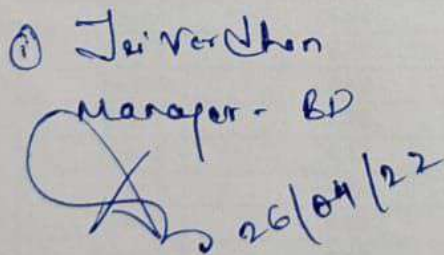 (i) Jai Vardhan
Manager - BD
26/04/22